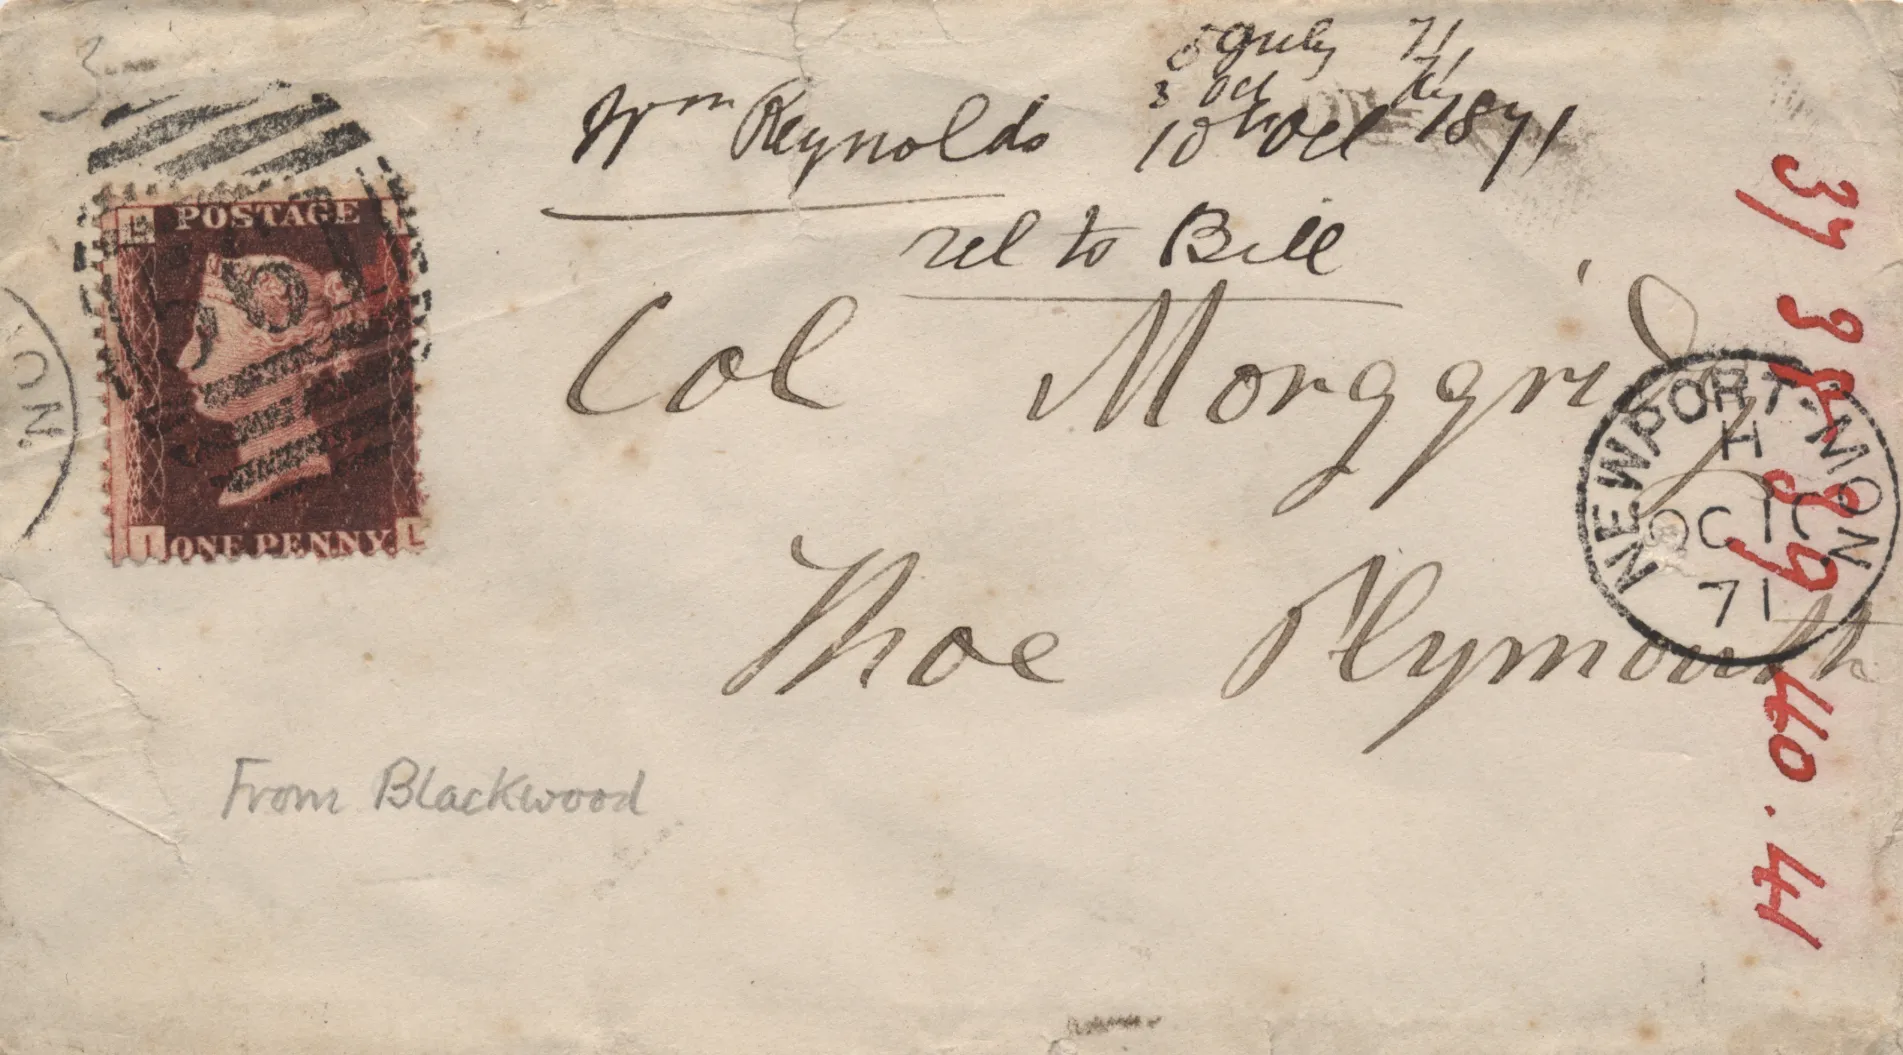 3
5 July 71
3 Oct 71
Wm Reynolds 10th Oct 1871
rel to Bill
POSTAGE
ONE PENNY
I L
Col Morggridg
Thoe Plymouth
NEWPORT-MON
H
OC 10
71
ON
From Blackwood
37 38 39 40. 41